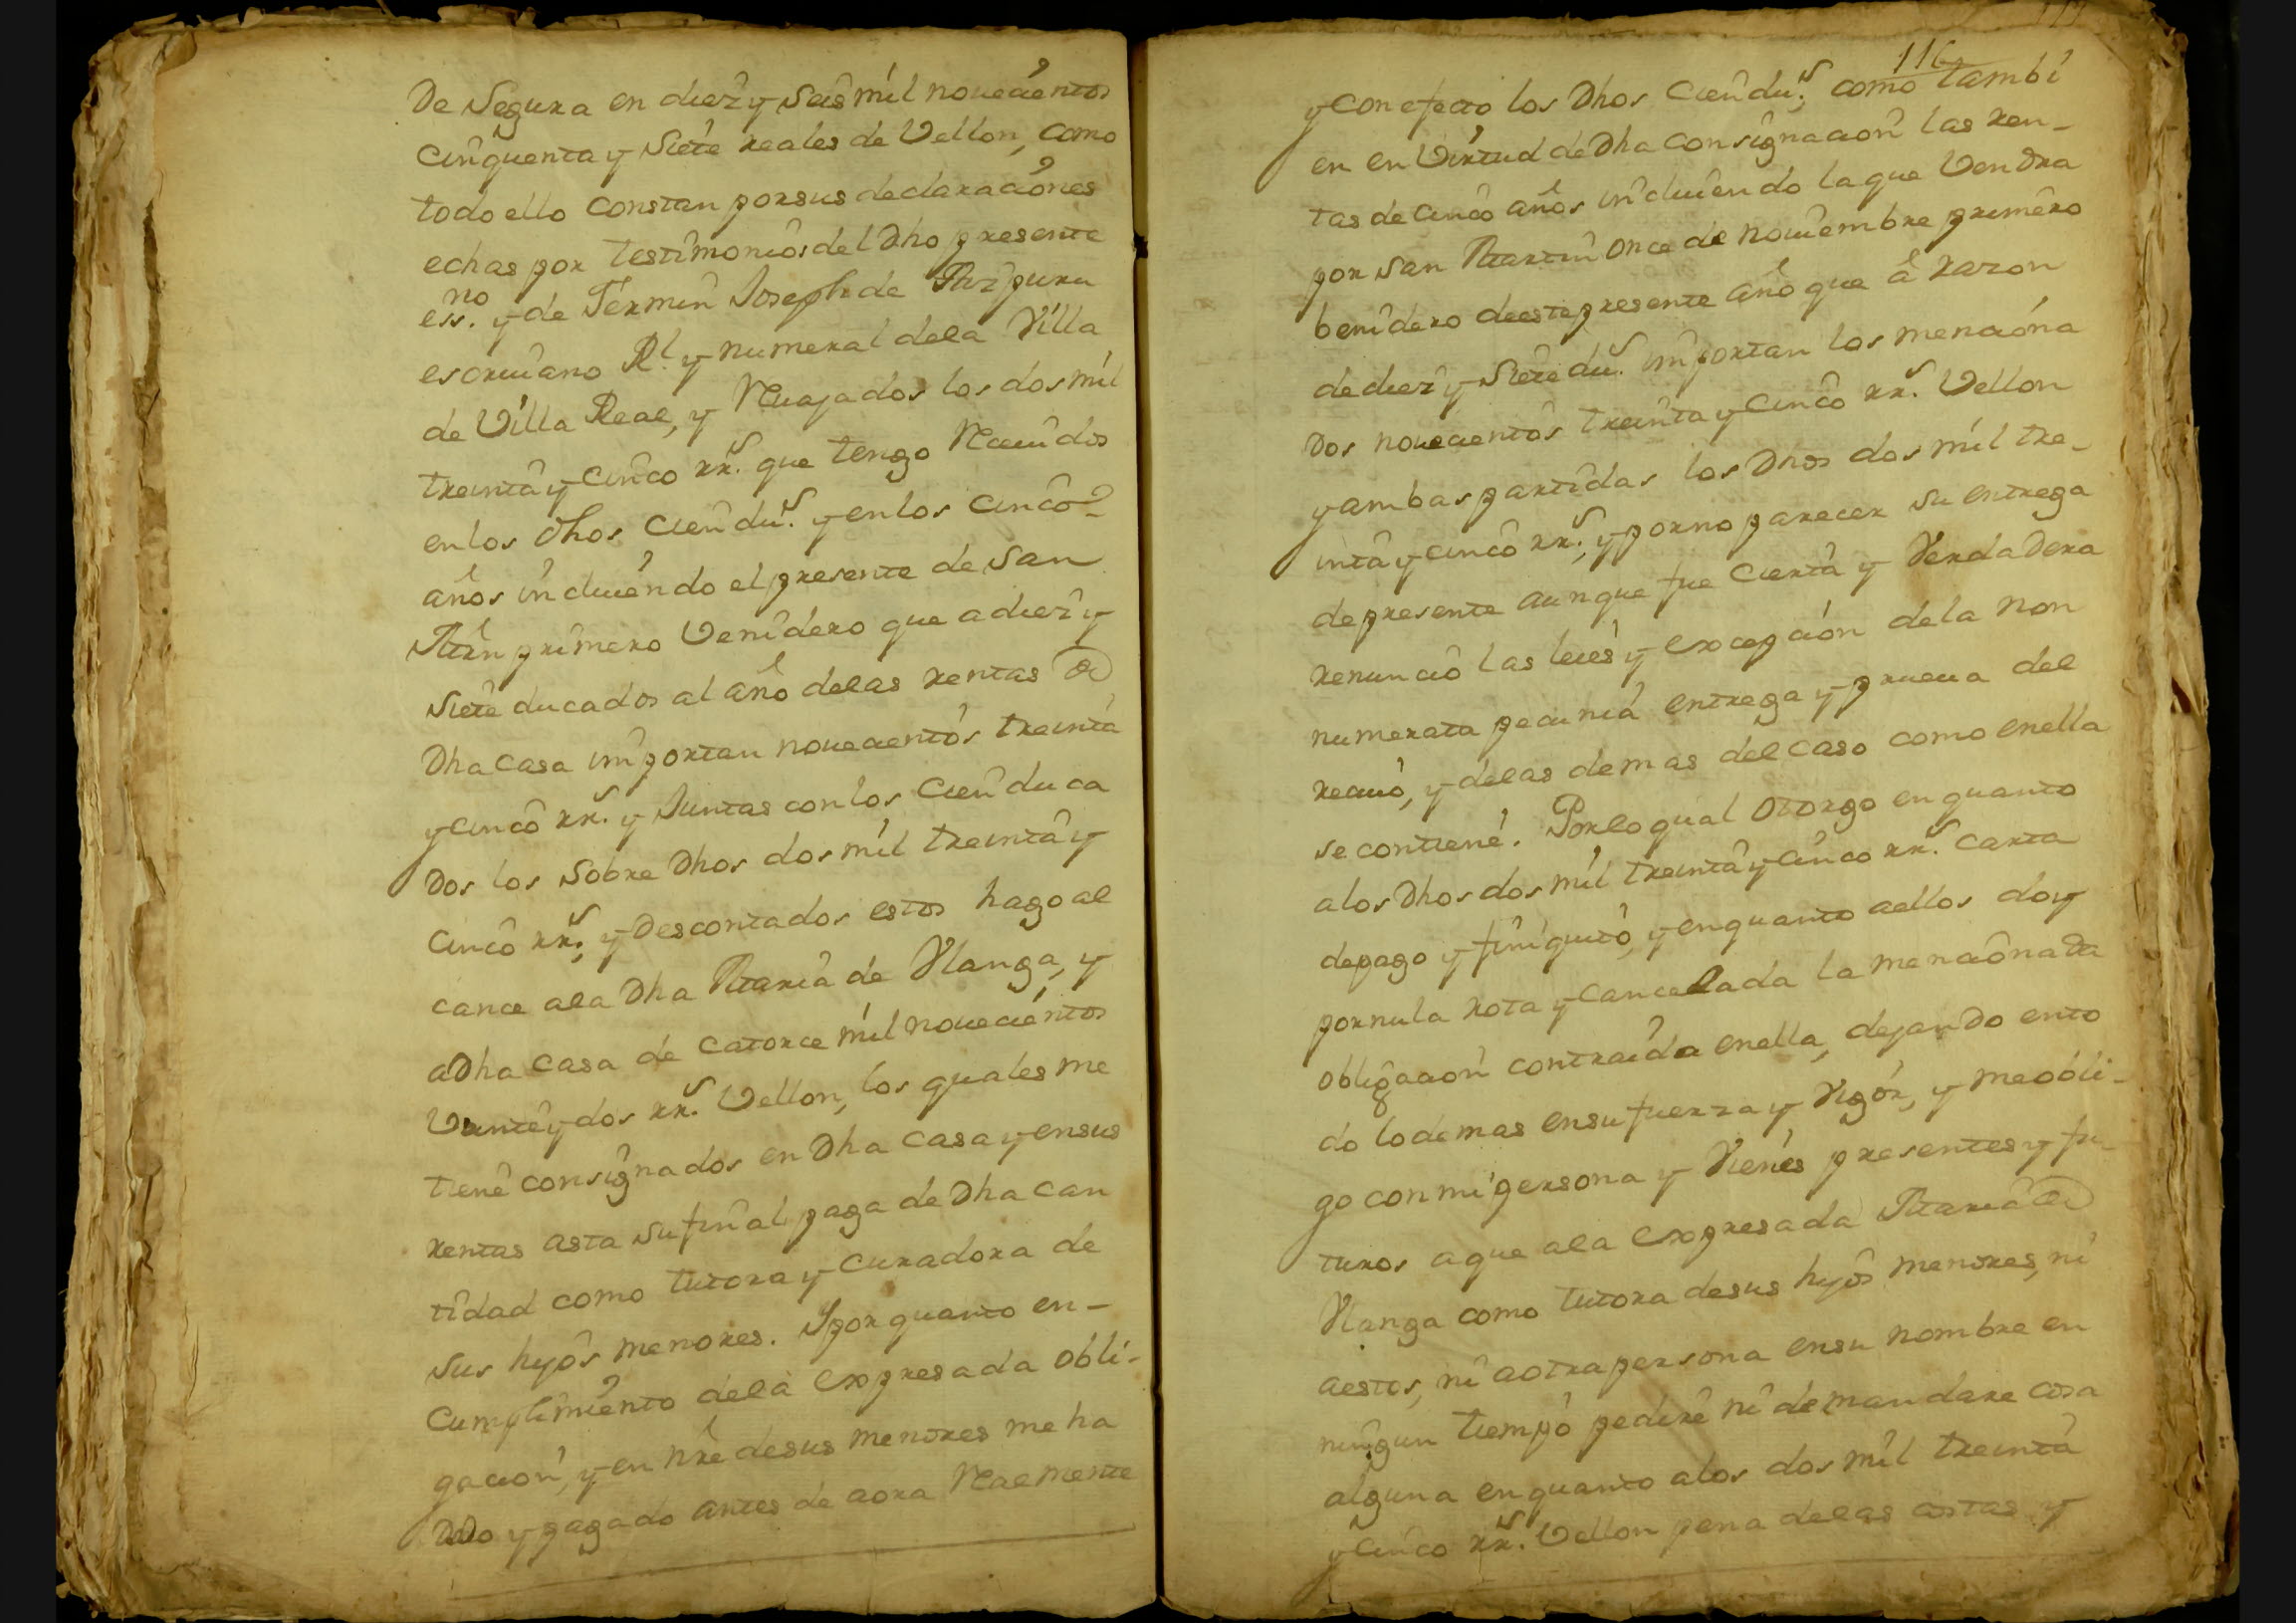 De Segura en diez y seis mil nouecientos
cinquenta y siete reales de Vellon, como
todo ello constan por sus declaraciones
echas por testimonios del Dho presente
essno. y de Fermin Joseph de
escriuano Rl. y numeral dela Villa
de Villa Real, y Reuajados los dos mil
treinta y cinco rrs. que tengo Reciuidos
en los dhos cien dus. y en los cinco
años incluiendo el presente de San
Mrn primero Venidero que a diez y
siete ducados al año delas rentas de
Dha casa importan nouecientos treinta
y cinco rrs. y Juntas con los cien duca
Dos los sobre Dhos dos mil treinta y
cinco rrs., y Descontados estos hago al
cance ala Dha Maria de Vlanga, y
a Dha casa de catorce mil nouecientos
Veinte y dos rrs. Vellon, los quales me
tiene consignados en Dha casa y en sus
rentas asta su final paga de Dha can
tidad como tutora y curadora de
sus hijos menores. Y por quanto en-
cumplimiento dela expresada obli-
gacion, y en nre de sus menores me ha
Dado y pagado antes de aora Realmente
116
y con efecto los Dhos cien dus., como tambi
en en Virtud de Dha consignacion las ren-
tas de cinco años incluiendo la que Vendra
por San Martin once de nouiembre primero
benidero de este presente año que a razon
de diez y siete dus. importan los menciona
Dos nouecientos treinta y cinco rrs. Vellon
y ambas partidas los Dhos dos mil tre-
inta y cinco rrs., y por no parecer su entrega
de presente aunque fue cierta y Verdadera
renuncio las leies y excepcion dela non
numerata pecunia entrega y prueua del
reciuo, y delas demas del caso como en ella
se contiene. Por lo qual otorgo en quanto
a los Dhos dos mil treinta y cinco rrs. carta
de pago y finiquito, y en quanto a ellos doy
por nula rota y cancelada la mencionada
obligacion contraida en ella, dejando en to
do lo demas en su fuerza y Vigor, y me obli-
go con mi persona y Vienes presentes y fu-
turos a que ala expresada Maria de
Vlanga como tutora de sus hijos menores, ni
a estos, ni a otra persona en su nombre en
ningun tiempo pedire ni demandare cosa
alguna en quanto a los dos mil treinta
y cinco rrs. Vellon pena delas costas y